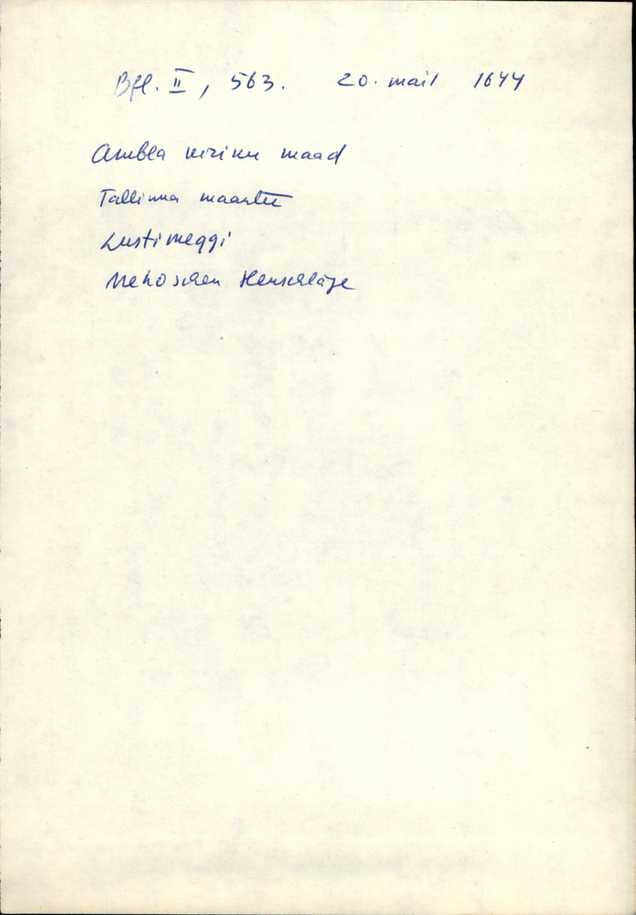 Bfl. II, 563. 20. mail 1644
Ambla kiriku maad
Tallinna maantee
Lustimeggi
Mehoschen Heuschläge